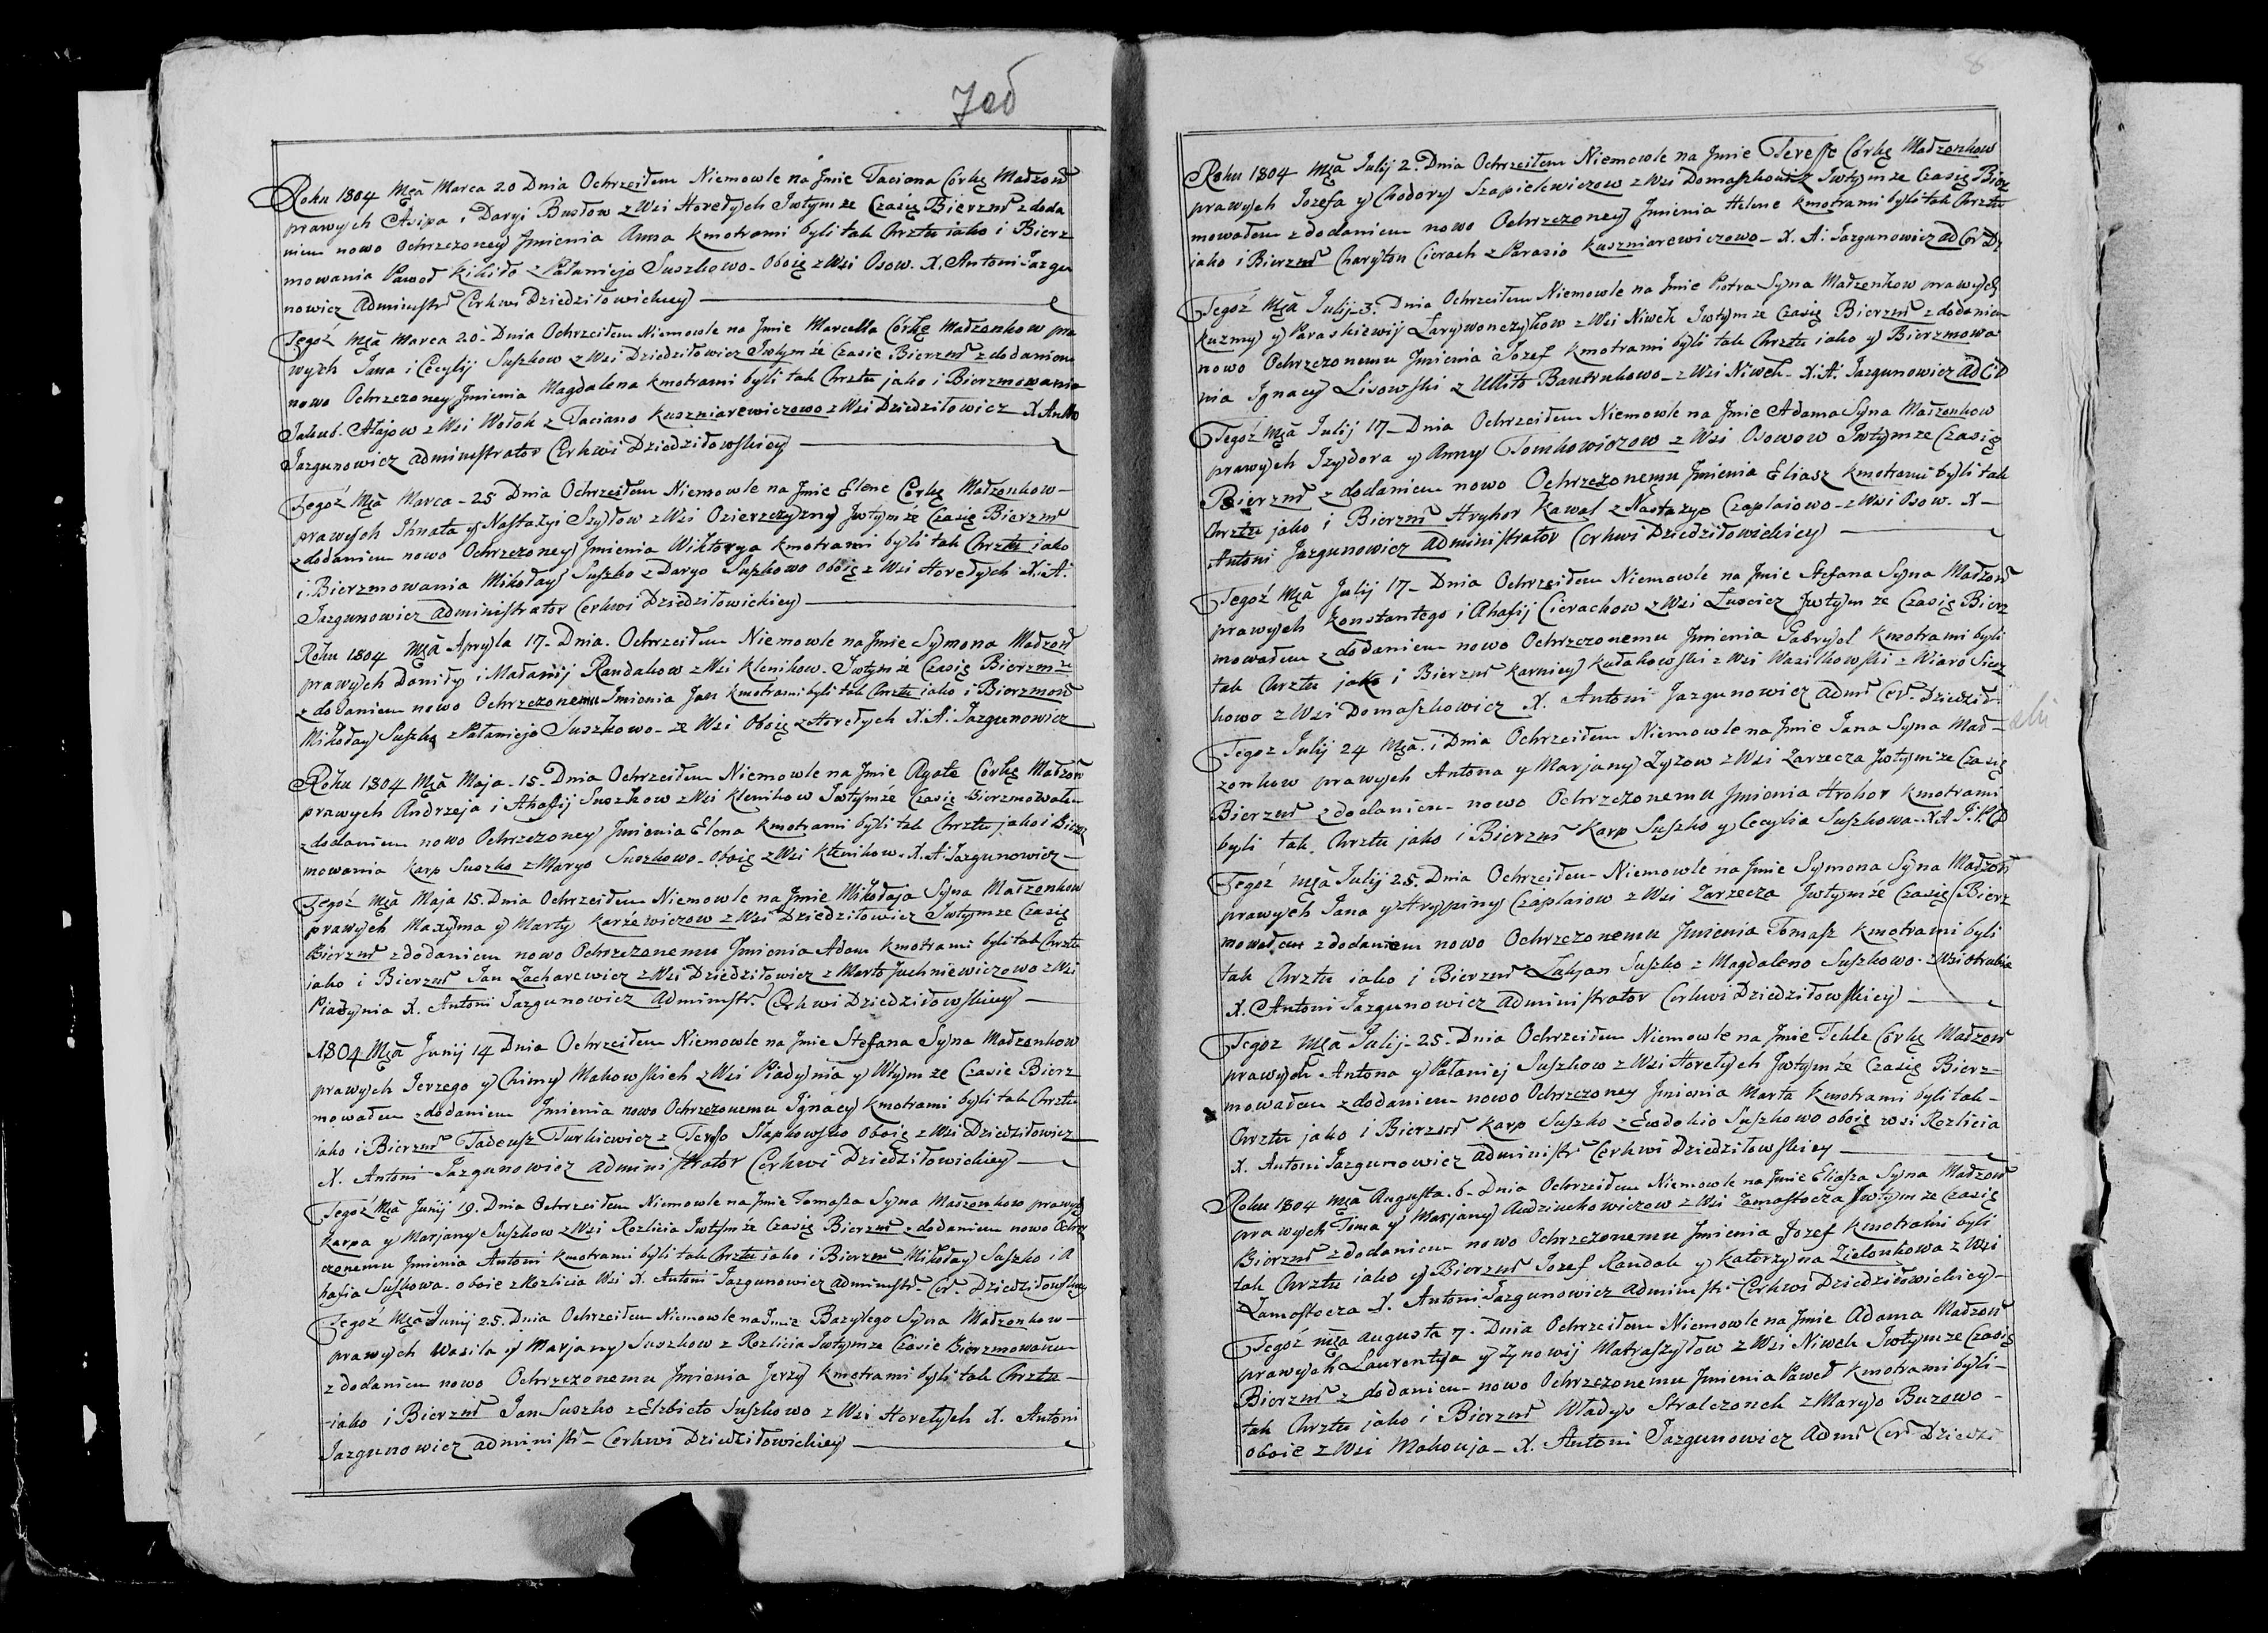 7 об
Roku 1804 Mcã Marca 20 Dnia Ochrzciłem Niemowle na Jmie Taciana Córkę Małżoń
prawych Asipa i Daryi Busłow z Wsi Horełych Jwtymże Czasię Bierzm̃ z doda
niem nowo Ochrzczoney Jmienia Anna kmotrami byli tak Chrztu iako i Bierz
mowania Paweł Kikiło z Pałamieją Suszkowo. Oboię z Wsi Osow. X. Antoni Jazgu
nowicz Administr̃ Cerkwi Dziedziłowickiey
Tegoż Mcã Marca 20. Dnia Ochrzciłem Niemowle na Jmie Marcella Córkę Małżonkow pra
wych Jana i Cecylij Suszkow z Wsi Dziedziłowicz Jwtymże Czasie Bierzm̃ z dodaniem
nowo Ochrzczoney Jmienia Magdalena kmotrami byli tak Chrztu jako i Bierzmowania
Jakub Ałajow z Wsi Wołok z Taciano Kuszniarewiczowo z Wsi Dziedziłowicz X. Anto
Jazgunowicz Administrator Cerkwi Dziedziłowskiey
Tegoż Mcã Marca - 25 Dnia Ochrzciłem Niemowle na Jmie Elene Corkę Małżonkow
prawych Ihnata y Nastazyi Szydłow z Wsi Ozierzczyzny Jwtymże Czasię Bierzm̃
z dodaniem nowo Ochrzczoney Jmienia Wiktorya kmotrami byli tak Chrztu iako
i Bierzmowania Mikołay Suszko z Daryo Suszkowo oboię z Wsi Horełych X. A.
Jazgunowicz Administrator Cerkwi Dziedziłowickiey
Roku 1804 Mcã Apryla 17. Dnia. Ochrzciłem Niemowle na Jmie Symona Małżoń
prawych Daniły i Małanij Randakow z Wsi Klenikow. Jwtymże Czasię Bierzm̃
z dodaniem nowo Ochrzczonemu Jmienia Jan kmotrami byli tak Chrztu iako i Bierzmow̃
Mikołay Suszko z Pałamiejo Suszkowo - ze Wsi Oboię z Horełych X. A. Jazgunowicz
Roku 1804 Mcã Maja - 15. Dnia Ochrzciłem Niemowle na Jmie Agate Córkę Małżoń
prawych Andrzeja i Ahafij Suszkow z Wsi Klenikow Jwtymże Czasię Bierzmowałem
z dodaniem nowo Ochrzczoney Jmienia Elena kmotrami byli tak Chrztu jako i Bierz
mowania Karp Suszko z Maryo Suszkowo. oboię z Wsi Klenikow. X. A. Jazgunowicz
Tegoż Mcã Maja 15. Dnia Ochrzciłem Niemowle na Jmie Mikołaja Syna Małzonkow
prawych Maxyma y Marty Karżewiczow z Wsi Dziedziłowicz Jwtymze Czasię
Bierzm̃ z dodaniem nowo Ochrzczonemu Jmienia Adam kmotrami byli tak Chrztu
jako i Bierzm̃ Jan Zacharewicz z Wsi Dziedziłowicz z Marto Juchniewiczowo z Wsi
Piadynia X. Antoni Jazgunowicz Administr. Cerkwi Dziedziłowskiey
1804 Mcã Junij 14 Dnia Ochrzciłem Niemowle na Jmie Stefana Syna Małżonkow
prawych Jerzego y Chimy Makowskich z Wsi Piadynia y Wtymże Czasie Bierz
mowałem z dodaniem Jmienia nowo Ochrzczonemu Jgnacy kmotrami byli tak Chrztu
iako i Bierzm̃ Tadeusz Turkiewicz z Tereso Słapkowsko oboię z Wsi Dziedziłowicz
X. Antoni Jazgunowicz Administrator Cerkwi Dziedziłowickiey
Tegoż Mcã Junij 19. Dnia Ochrzciłem Niemowle na Jmie Tomasza Syna Małżonkow prawych
Karpa y Marjany Suszkow z Wsi Rozlicia Jwtymże Czasię Bierzm̃ z dodaniem nowo Ochrz
czonemu Jmienia Antoni kmotrami byli tak Chrztu iako i Bierzm̃ Mikołay Suszko i A
hafia Suszkowa. oboie z Rozlicia Wsi X. Antoni Jazgunowicz Administr. Cer. Dziedziłowskiey
Tegoż Mcã Junij 25. Dnia Ochrzciłem Niemowle na Jmie Bazylego Syna Małżonkow
prawych Wasila y Marjany Suszkow z Rozlicia Jwtymże Czasie Bierzmowałem
z dodaniem nowo Ochrzczonemu Jmienia Jerzy kmotrami byli tak Chrztu
iako i Bierzm̃ Jan Suszko z Elzbieto Suszkowo z Wsi Horełych X. Antoni
Jazgunowicz Administr̃ Cerkwi Dziedziłowickiey
8
Roku 1804 Mcã Julij 2. Dnia Ochrzciłem Niemowle na Jmie Teresse Córkę Małżonkow
prawych Jozefa y Chodory Szapielewiczow z Wsi Domaszkowicz Jwtymże Czasię Bierz
mowałem z dodaniem nowo Ochrzczoney Jmienia Helene kmotrami byli tak Chrztu
jako i Bierzm̃ Charyton Cierach z Parasio Kuszniarewiczowo - X. A. Jazgunowicz Ad Cer Dz
Tegoż Mcã Julij - 3. Dnia Ochrzciłem Niemowle na Jmie Piotra Syna Małżenkow prawych
Kuzmy y Paraskiewij Larywonczykow z Wsi Niwek Jwtymże Czasię Bierzm̃ z dodaniem
nowo Ochrzczonemu Jmienia Jozef kmotrami byli tak Chrztu iako y Bierzmowa
nia Jgnacy Lisowski z Ullito Bautrukowo - z Wsi Niwek - X. A. Jazgunowicz Ad C D
Tegoż Mcã Julij 17 - Dnia Ochrzciłem Niemowle na Jmie Adama Syna Małzonkow
prawych Jzydora y Anny Tomkowiczow z Wsi Osowow Jwtymże Czasię
Bierzm̃ z dodaniem nowo Ochrzczonemu Jmienia Eliasz kmotrami byli tak
Chrztu jako i Bierzm̃ Hryhor Kawal z Nastazyo Czaplaiowo - z Wsi Osow. X -
Antoni Jazgunowicz Administrator Cerkwi Dziedziłowickiey
Tegoż Mcã Julij 17 - Dnia Ochrzciłem Niemowle na Jmie Stefana Syna Małżoń
prawych Konstantego i Ahafij Cierachow z Wsi Luscicz Jwtymże Czasię Bierz
mowałem z dodaniem nowo Ochrzczonemu Jmienia Gabryel kmotrami byli
tak Chrztu jako i Bierzm̃ Karniey Kułakowski z Wsi Wasilkowski z Wiaro Siesz
kowo z Wsi Domaszkowicz X. Antoni Jazgunowicz Adm̃ Cer. Dziedził-
Tegoz Julij 24 Mcã. i Dnia Ochrzciłem Niemowle na Jmie Jana Syna Mał-
zonkow prawych Antona y Marjany Zyzow z Wsi Zarzecza Jwtymże Czasię
Bierzm̃ z dodaniem nowo Ochrzczonemu Jmienia Hrehor kmotrami
byli tak Chrztu jako i Bierzm̃ Karp Suszko y Cecylia Suszkowa. X A J. A C D
Tegoż Mcã Julij 25. Dnia Ochrzciłem Niemowle na Jmie Symona Syna Małżoń
prawych Jana y Hryppiny Czaplaiow z Wsi Zarzecza Jwtymże Czasię Bierz
mowałem z dodaniem nowo Ochrzczonemu Jmienia Tomasz kmotrami byli
tak Chrztu iako i Bierzm̃ Łukjan Suszko z Magdaleno Suszkowo. z Wsi Otrubia
X. Antoni Jazgunowicz Administrator Cerkwi Dziedziłowskiey
Tegoz Mcã Julij - 25. Dnia Ochrzciłem Niemowle na Jmie Tekle Córkę Małżoń
prawych Antona y Pałaniej Suszkow z Wsi Horełych Jwtymże Czasię Bierz-
mowałem z dodaniem nowo Ochrzczoney Jmienia Marta kmotrami byli tak -
Chrztu jako i Bierzm̃ Karp Suszko z Ewdokio Suszkowo oboię wsi Rozlicia
X. Antoni Jazgunowicz Administr̃ Cerkwi Dziedziłowskiey
Roku 1804 Mcã Augusta. 6 - Dnia Ochrzciłem Niemowle na Jmie Eliasza Syna Małżoń
prawych Tima y Marjany Audziuchowiczow z Wsi Zamostocza Jwtymże Czasię
Bierzm̃ z dodaniem nowo Ochrzczonemu Jmienia Jozef kmotrami byli
tak Chrztu iako y Bierzm̃ Jozef Randak y Katerzyna Zielonkowa z Wsi
Zamostocza X. Antoni Jazgunowicz Administr. Cerkwi Dziedziłowickiey -
Tegoż mca Augusta 7. Dnia Ochrzciłem Niemowle na Jmie Adama Małżoń
prawych Laurentya y Zynowij Matraszyłow z Wsi Niwek Jwtymże Czasię
Bierzm̃ z dodaniem nowo Ochrzczonemu Jmienia Paweł kmotrami byli -
tak Chrztu jako i Bierzm̃ Władys Stralczonek z Maryo Buzowo -
oboie z Wsi Makouja - X. Antoni Jazgunowicz Adm̃ Cer Dziedzi